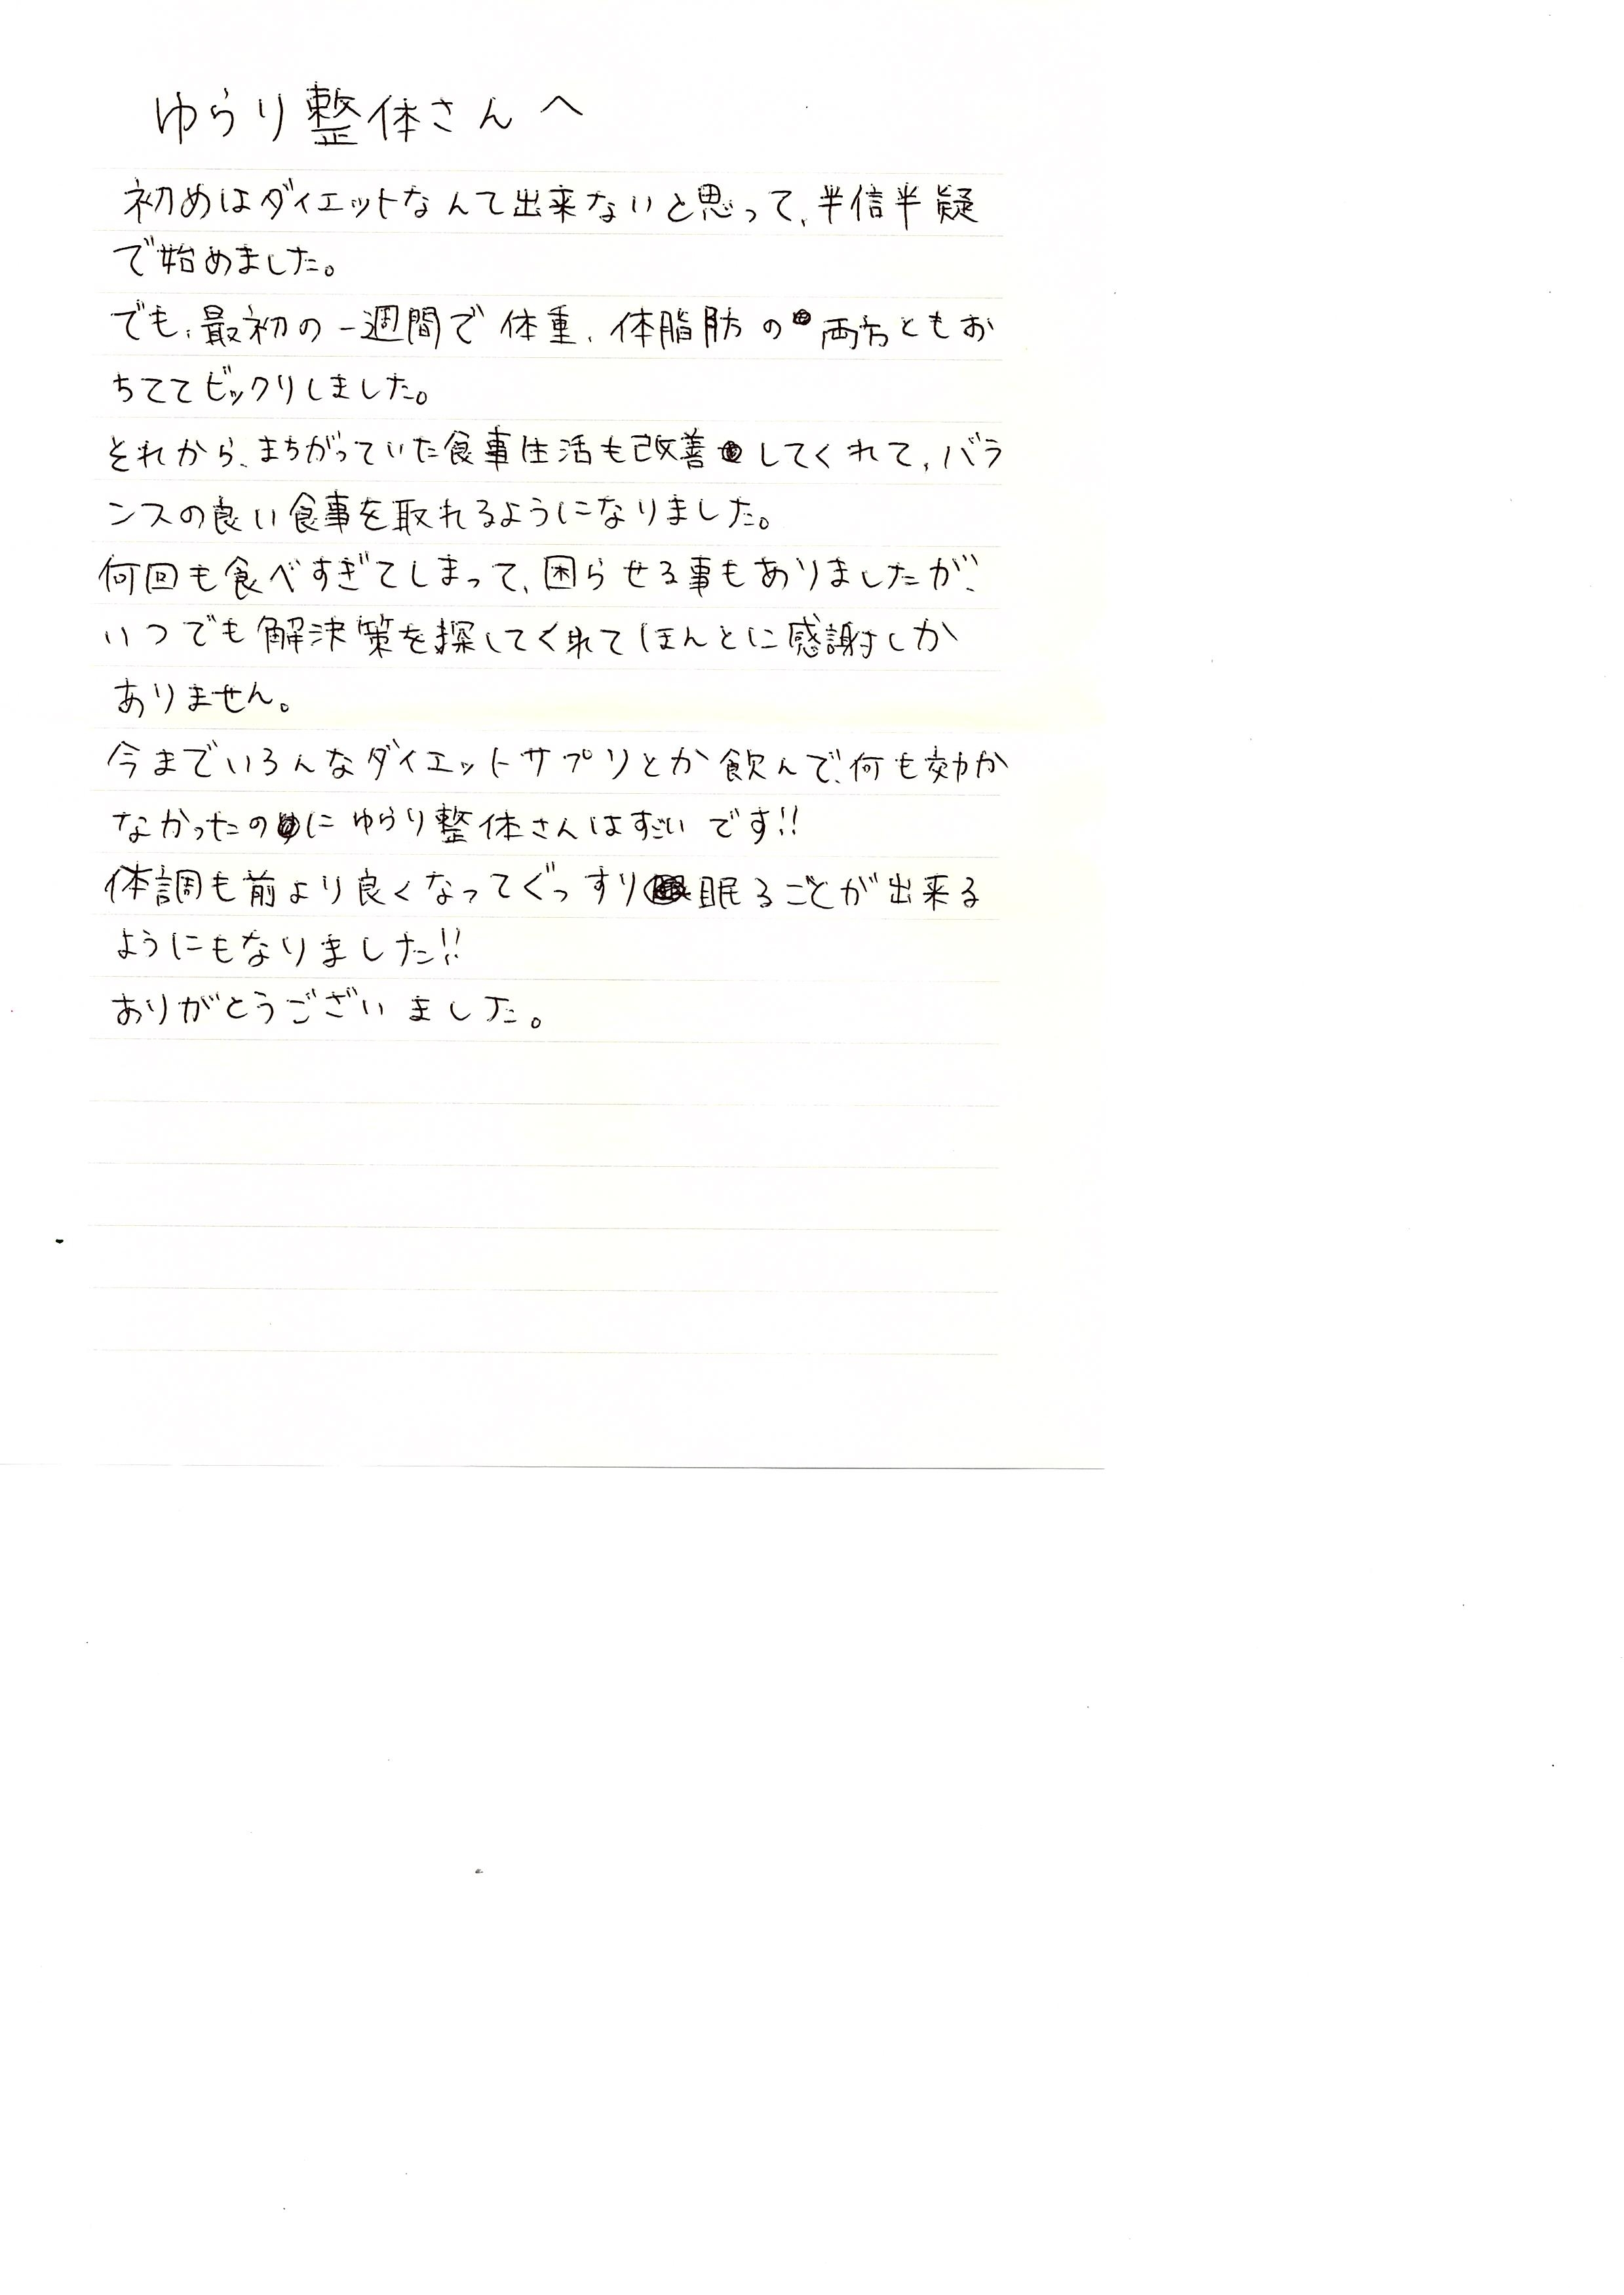 ゆらり整体さんへ
初めはダイエットなんて出来ないと思って、半信半疑
で始めました。
でも、最初の一週間で体重、体脂肪の両方ともお
ちててビックリしました。
それから、まちがっていた食事生活も改善してくれて、バラ
ンスの良い食事を取れるようになりました。
何回も食べすぎてしまって、困らせる事もありましたが、
いつでも解決策を探してくれてほんとに感謝しか
ありません。
今までいろんなダイエットサプリとか飲んで、何も効か
なかったのにゆらり整体さんはすごいです!!
体調も前より良くなってぐっすり眠ることが出来る
ようにもなりました!!
ありがとうございました。